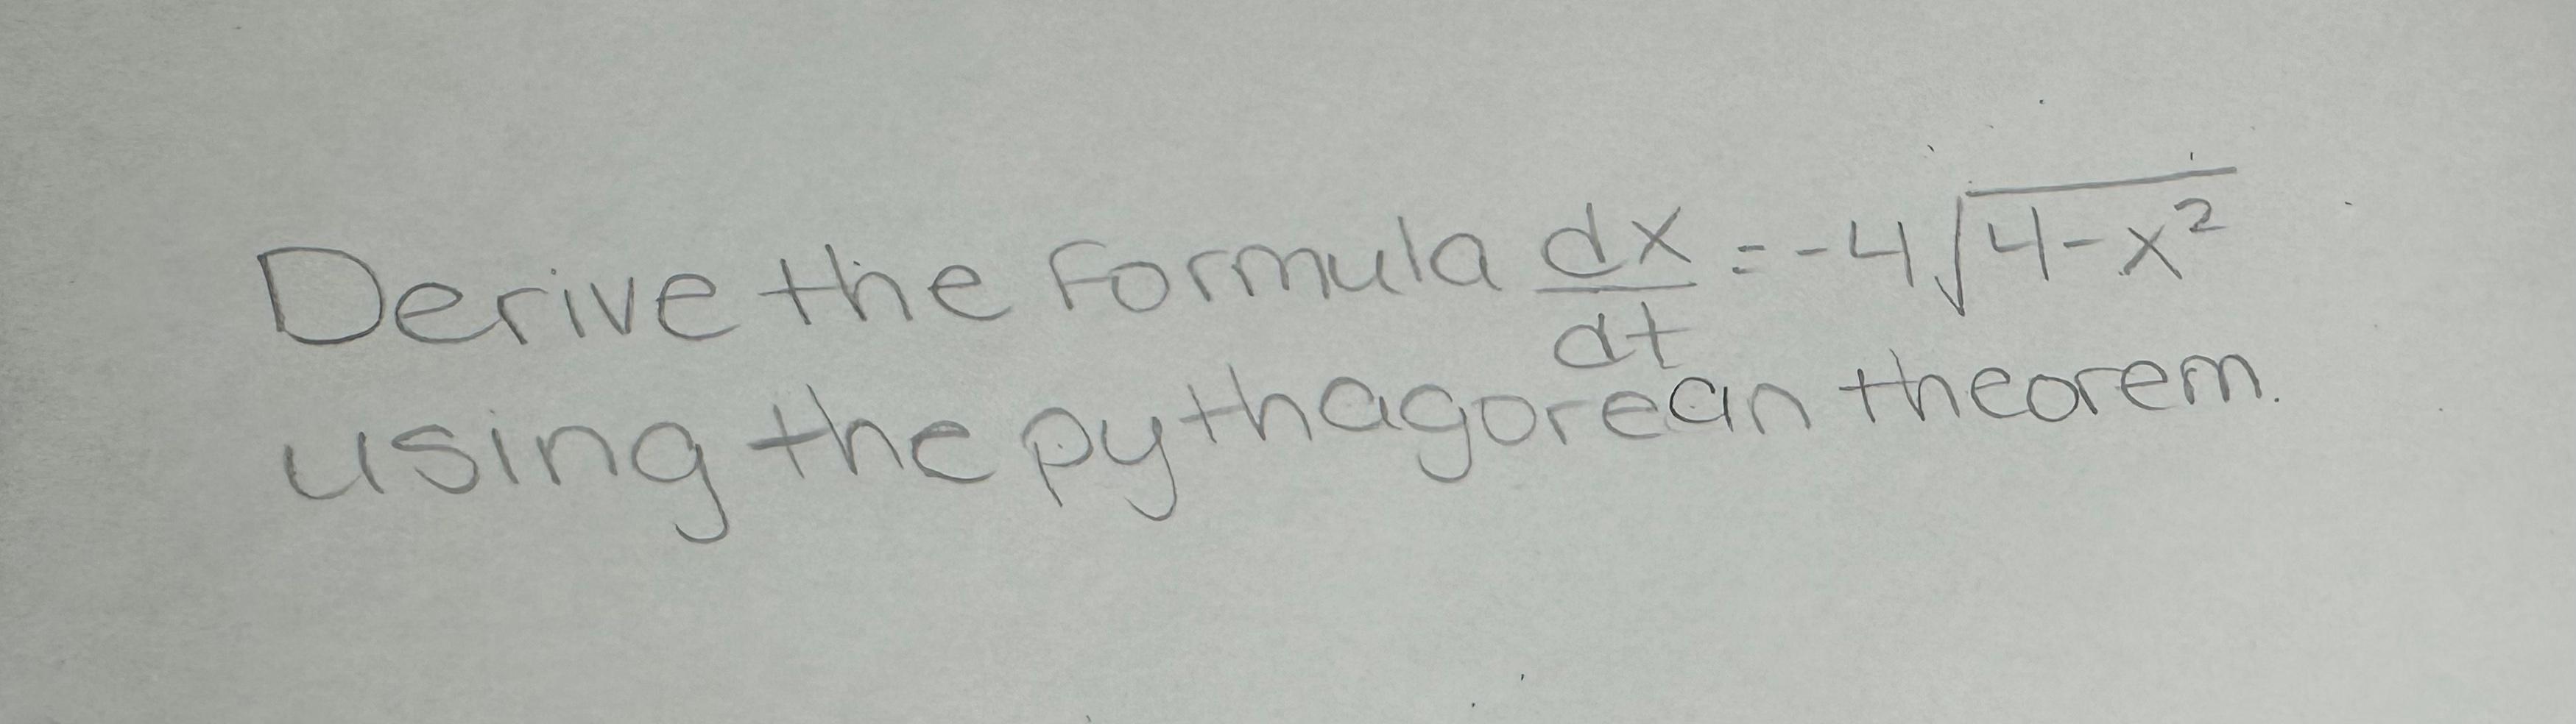 Derive the formula dx/dt = -4√(4-x²)
using the pythagorean theorem.